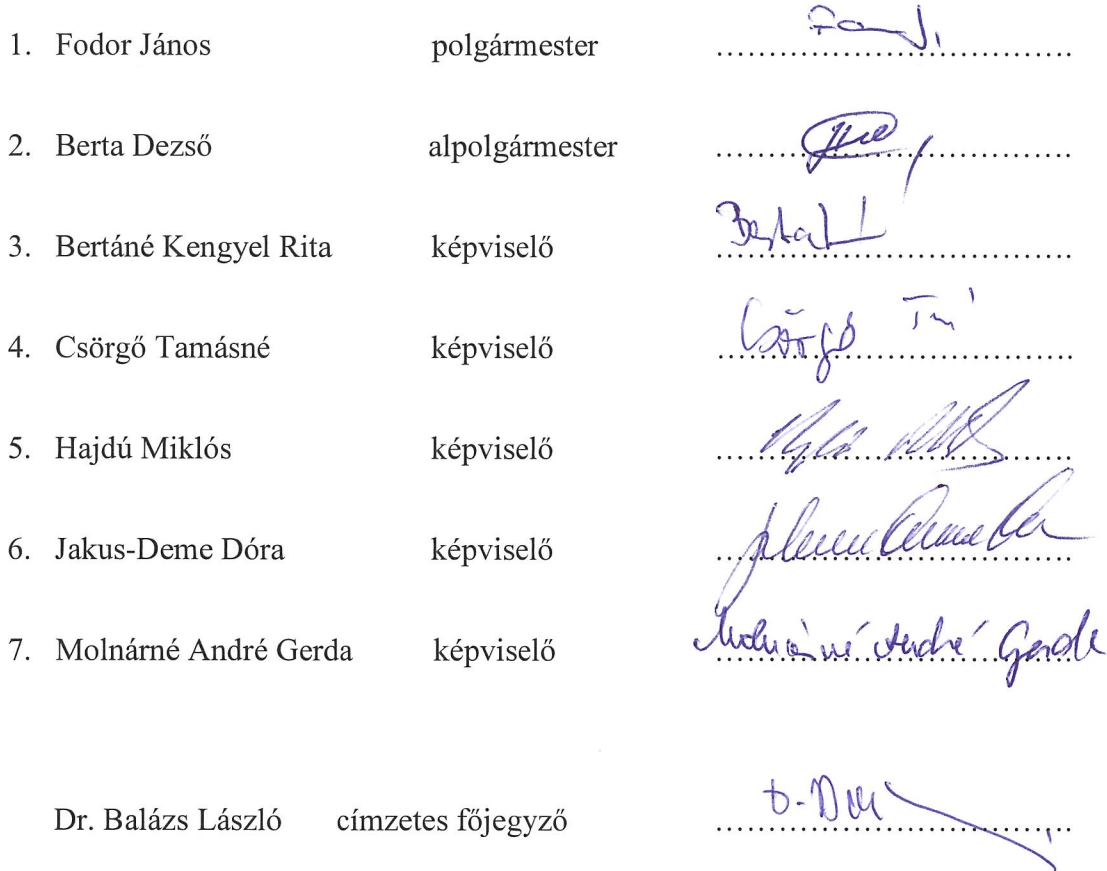 1. Fodor János polgármester
2. Berta Dezső alpolgármester
3. Bertáné Kengyel Rita képviselő
4. Csörgő Tamásné képviselő Csörgő
5. Hajdú Miklós képviselő
6. Jakus-Deme Dóra képviselő
7. Molnárné André Gerda képviselő Molnárné André Gerda
Dr. Balázs László címzetes főjegyző